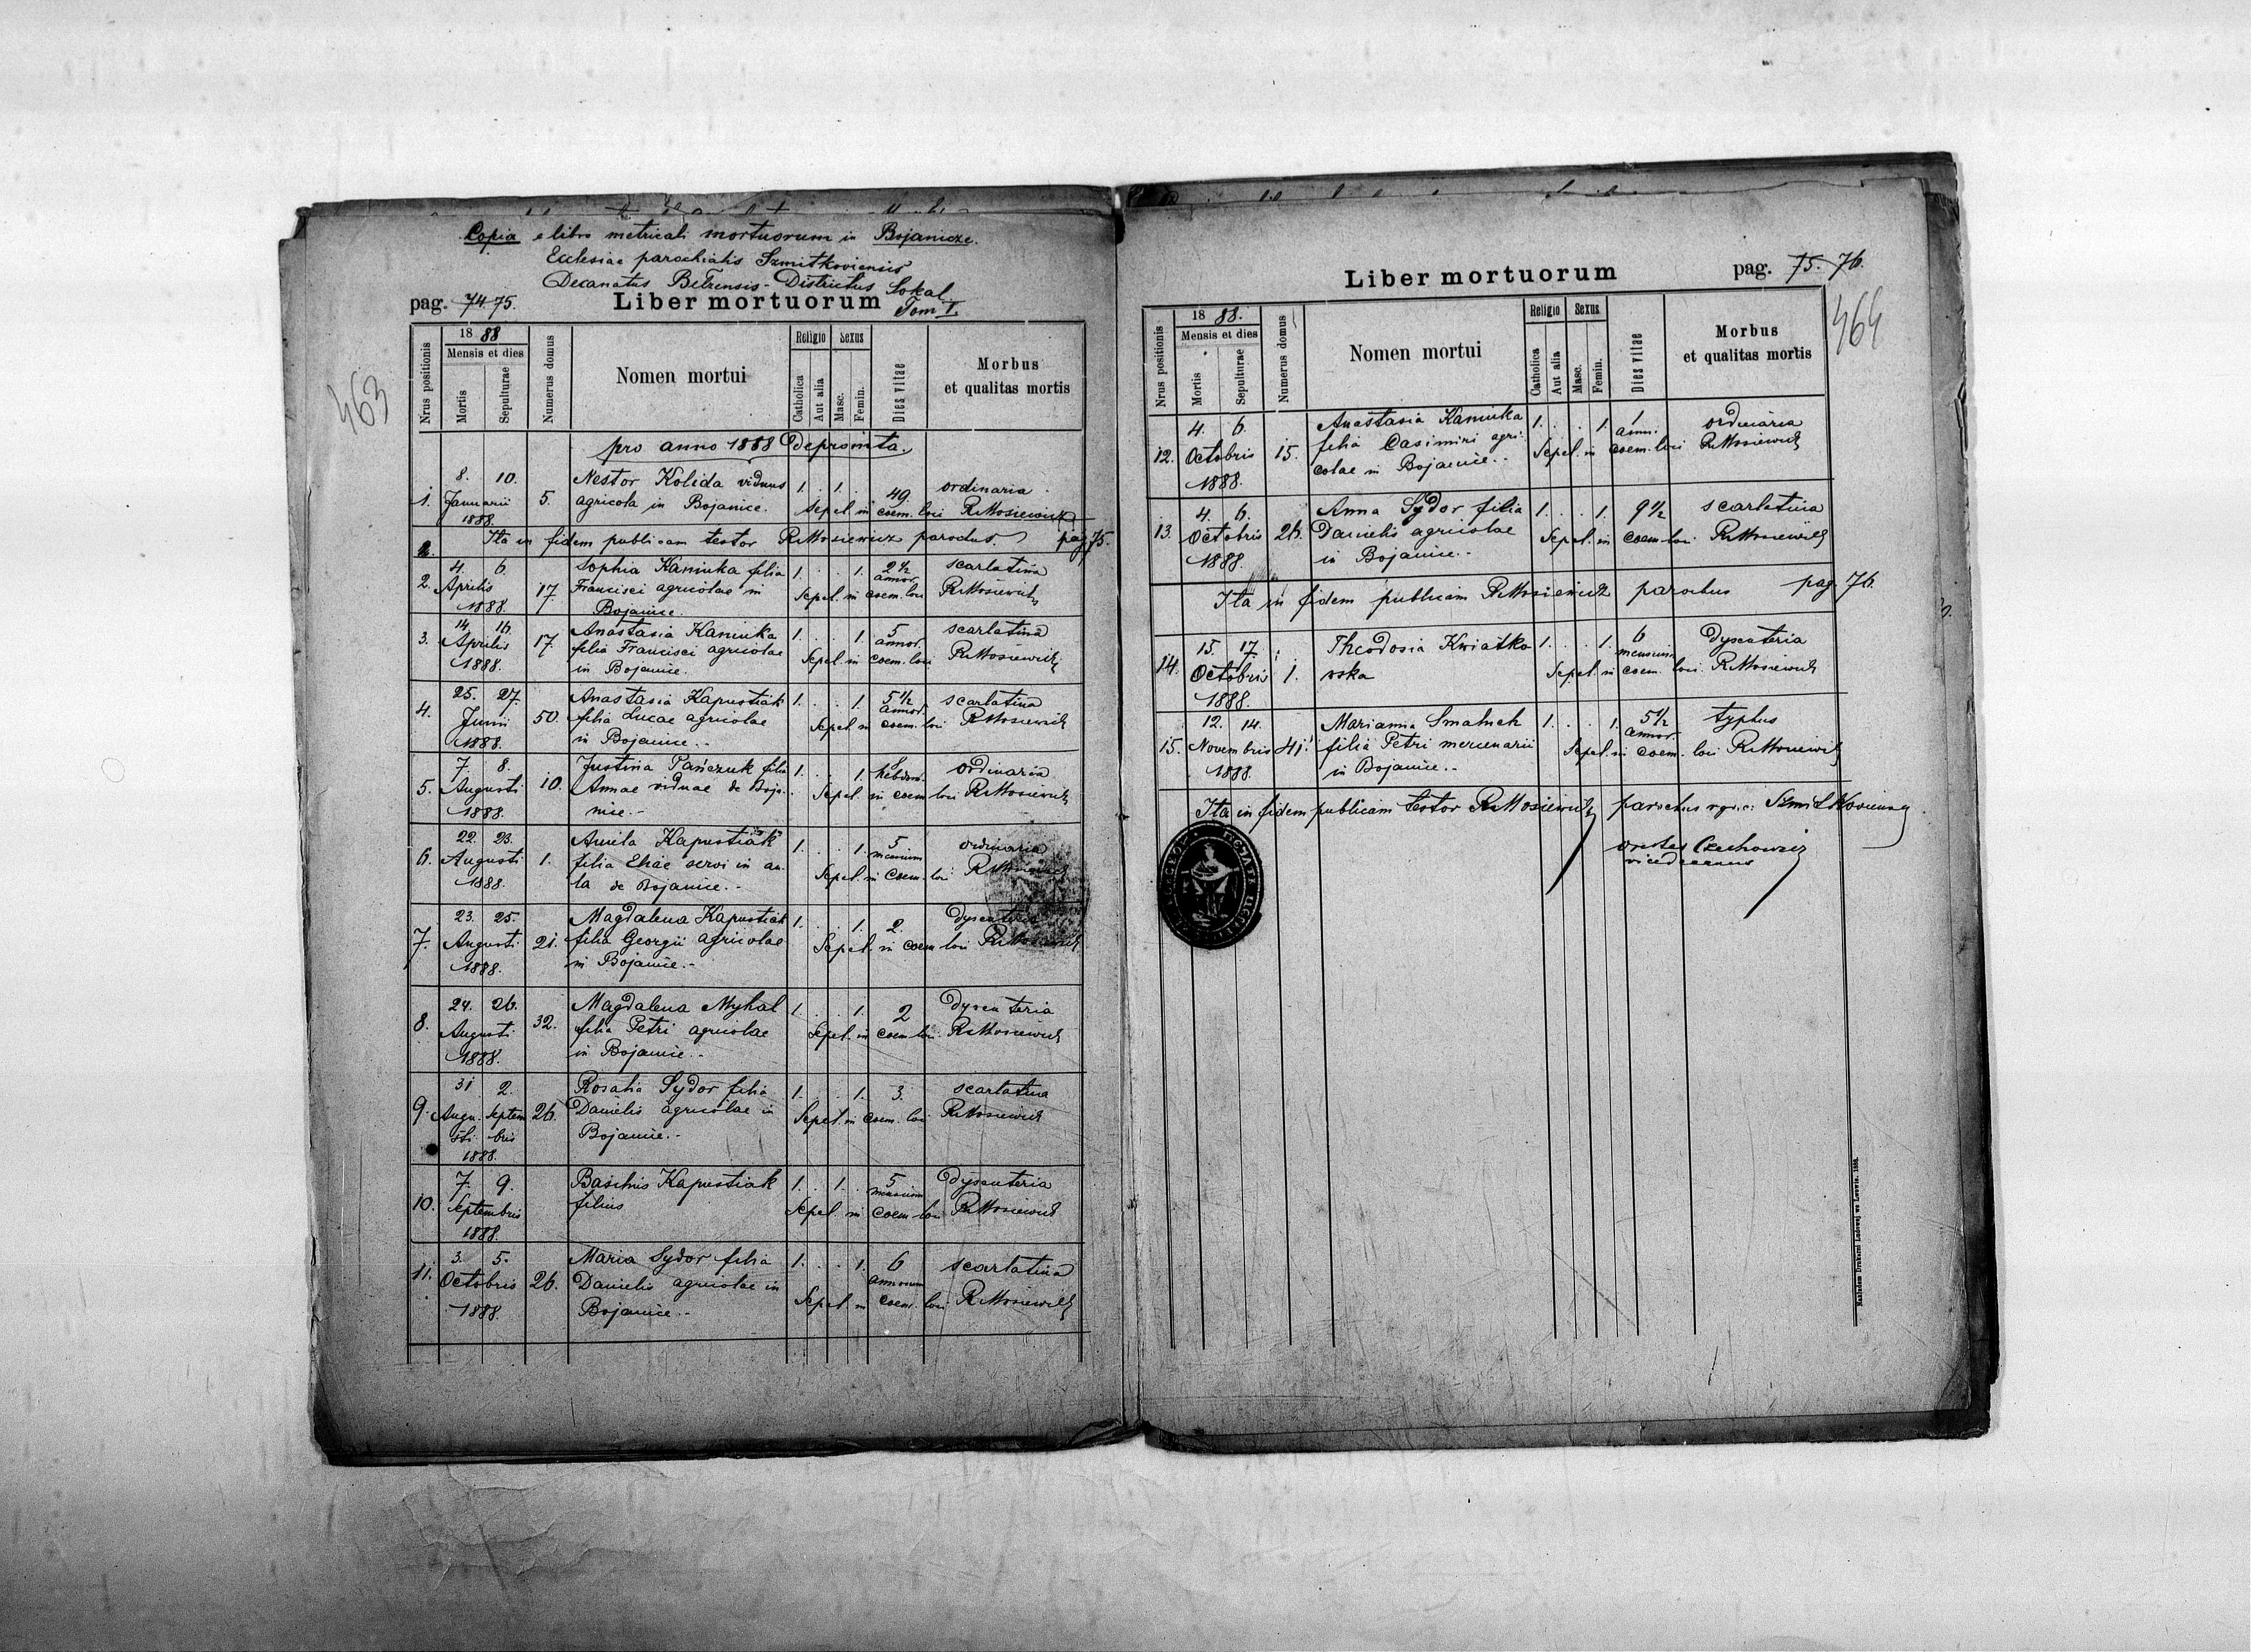 Copia e libro metricali mortuorum in Bojanicze.
Ecclesiae parochialis Szmitkoviensis
Decanatus Belzensis - Districtus Sokal
pag. 74. 75.
Liber mortuorum
Tom I.
463
Nrus positionis
18 88
Mensis et dies
Mortis
Sepulturae
Numerus domus
Nomen mortui
Religio
Catholica
Aut alia
Sexus
Masc.
Femin.
Dies vitae
Morbus
et qualitas mortis
pro anno 1888 depromta.
1. 8. 10. Januarii 1888. 5.
Nestor Kolida viduus
agricola in Bojanice.
1. . 1. . 49. ordinaria
Sepel. in coem. loci R. Mosiewicz
Ita in fidem publicam testor R. Mosiewicz parochus. pag 75.
2. 4. 6. Aprilis 1888. 17.
Sophia Kaniuka filia
Francisci agricolae in
Bojanice.
1. . . 1. 2 1/2 annor. scarlatina
Sepel. in coem. loci R. Mosiewicz
3. 14. 16. Aprilis 1888. 17.
Anastasia Kaniuka
filia Francisci agricolae
in Bojanice.
1. . . 1. 5 annor. scarlatina
Sepel. in coem. loci R. Mosiewicz
4. 25. 27. Junii 1888. 50.
Anastasia Kapustiak
filia Lucae agricolae
in Bojanice.-
1. . . 1. 5 1/2 annor. scarlatina
Sepel. in coem. loci R. Mosiewicz
5. 7. 8. Augusti 1888. 10.
Justina Pańczuk filia
Annae viduae de Boja-
nice.-
1. . . 1. hebdom. ordinaria
Sepel. in coem. loci R. Mosiewicz
6. 22. 23. Augusti 1888. 1.
Aniela Kapustiak
filia Eliae servi in au-
la de Bojanice.-
1. . . 1. 5 mensium ordinaria
Sepel. in coem. loci R. Mosiewicz
7. 23. 25. Augusti 1888. 21.
Magdalena Kapustiak
filia Georgii agricolae
in Bojanice.-
1. . . 1. 2. dysenteria
Sepel. in coem. loci R. Mosiewicz
8. 24. 26. Augusti 1888. 32.
Magdalena Myhal
filia Petri agricolae
in Bojanice.-
1. . . 1. 2 dysenteria
Sepel. in coem. loci. R. Mosiewicz
9. 31 2. Augu- Septem
sti bris 1888. 26.
Rosalia Sydor filia
Danielis agricolae in
Bojanice.-
1. . . 1. 3. scarlatina
Sepel. in coem. loci R. Mosiewicz
10. 7. 9. Septembris 1888.
Basilius Kapustiak
filius
1. . 1. . 5 mensium dysenteria
Sepel. in coem. loci R. Mosiewicz
11. 3. 5. Octobris 1888. 26.
Maria Sydor filia
Danielis agricolae in
Bojanice.-
1. . . 1. 6 annorum scarlatina
Sepel. in coem. loci R. Mosiewicz
Liber mortuorum
pag. 75. 76.
464
Nrus positionis
18 88.
Mensis et dies
Mortis
Sepulturae
Numerus domus
Nomen mortui
Religio
Catholica
Aut alia
Sexus
Masc.
Femin.
Dies vitae
Morbus
et qualitas mortis
12. 4. 6. Octobris 1888. 15.
Anastasia Kaniuka
filia Casimiri agri-
colae in Bojanice.-
1. . . 1. 1 anni. ordinaria
Sepel. in coem. loci R. Mosiewicz
13. 4. 6. Octobris 1888. 26.
Anna Sydor filia
Danielis agricolae
in Bojanice.-
1. . . 1. 9 1/2 scarlatina
Sepel. in coem. loci R. Mosiewicz
Ita in fidem publicam R. Mosiewicz parochus pag. 76.
14. 15. 17. Octobris 1888. 1.
Theodosia Kwiatko
wska
1. . . 1. 6 mensium dysenteria
Sepel. in coem. loci. R. Mosiewicz
15. 12. 14. Novembris 1888. 41.
Marianna Smaluch
filia Petri mercenarii
in Bojanice.-
1. . . 1. 5 1/2 annor. typhus
Sepel. in coem. loci R. Mosiewicz
Ita in fidem publicam testor R. Mosiewicz parochus
Orestes Czechowicz
vicedecanus
Nakładem Drukarni Ludowej we Lwowie. 1886.